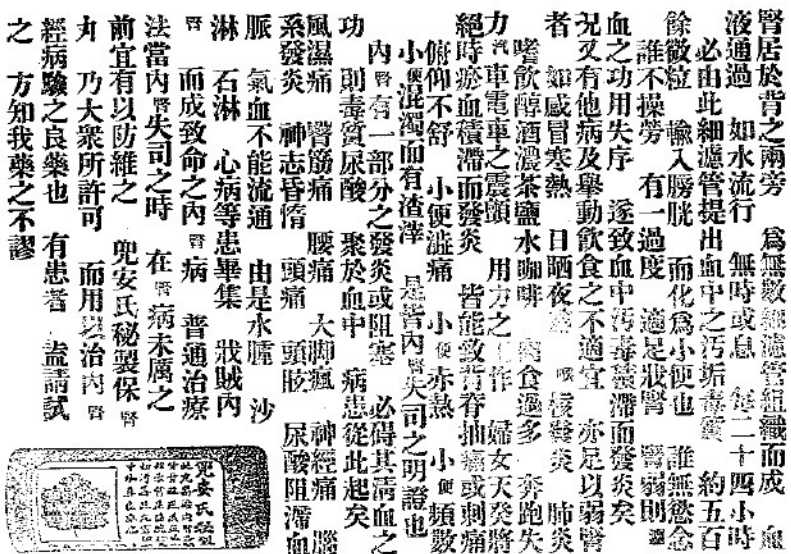 腎居於背之兩旁　爲無數細濾管組織而成　血
液通過　如水流行　無時或息　每二十四小時
必由此細濾管提出血中之汚垢毒質　約五百
餘微粒　輸入膀胱　而化爲小便也　誰無慾念
誰不操勞　有一過度　適足戕腎　腎弱則濾
血之功用失序　遂致血中汚毒積滯而發炎矣
況又有他病及舉動飲食之不適宜　亦足以弱腎
者　如感冒寒熱　日晒夜　喉核發炎　肺炎
嗜飲醇酒濃茶鹽水咖啡　食過多　奔跑失
力　汽車電車之震顫　用力之工作　婦女天癸將
絕時瘀血積滯而發炎　皆能致背脊抽痛或刺痛
俯仰不舒　小便澁痛　小便赤熱　小便頻數
小便混濁而有渣滓　是皆內腎失司之明證也
內腎有一部分之發炎或阻塞　必碍其清血之
功　則毒質尿酸　聚於血中　病患從此起矣
風濕痛　腎筋痛　腰痛　大脚瘋　神經痛　腦
系發炎　神志昏惰　頭痛　頭眩　尿酸阻滯血
脈　氣血不能流通　由是水腫　沙
淋　石淋　心病等患畢集　戕賊內
腎　而成致命之內腎病　普通治療
法當內腎失司之時　在腎病未厲之
前宜有以防維之　兜安氏秘製保腎
丸　乃大衆所許可　而用以治內腎
經病驗之良藥也　有患者　盍請試
之　方知我藥之不謬
兜安氏秘製